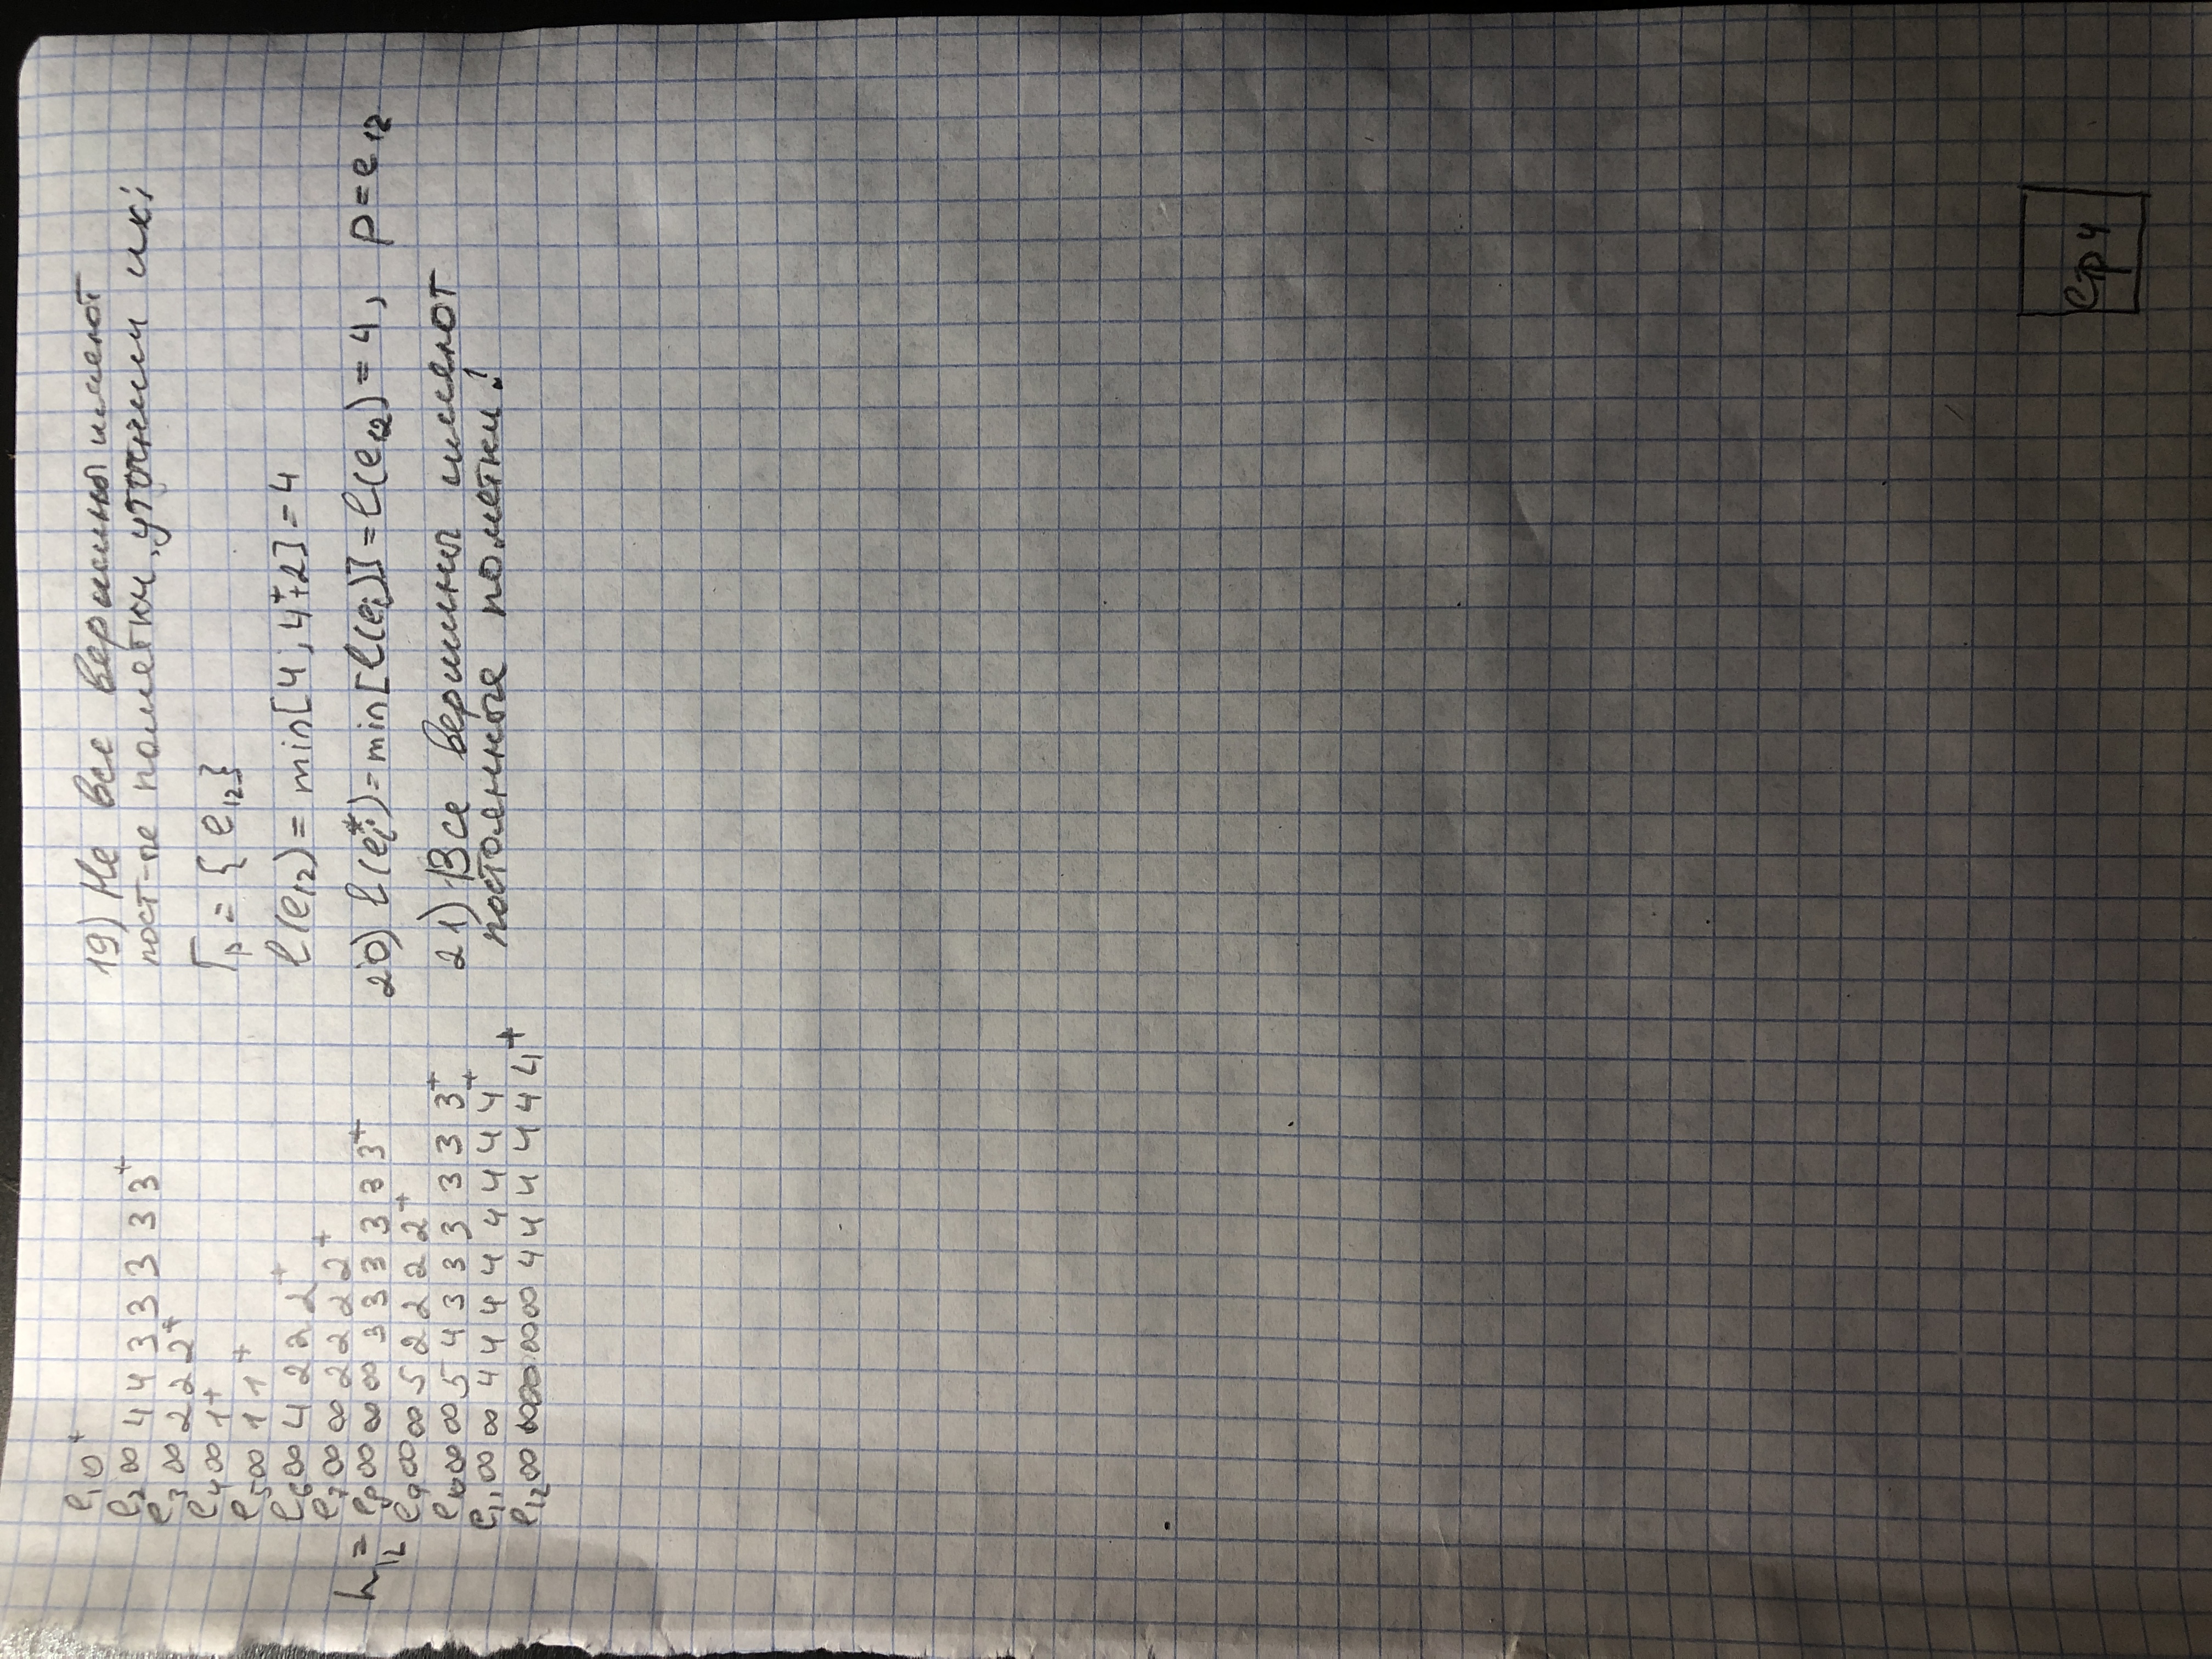 e₁ 0⁺
e₂ ∞ 4 4 3 3 3 3 3⁺
e₃ ∞ 2 2 2⁺
e₄ ∞ 1⁺
e₅ ∞ 1 1⁺
e₆ ∞ 4 2 2 2⁺
e₇ ∞ ∞ 2 2 2 2⁺
L₁₂ = e₈ ∞ ∞ ∞ 3 3 3 3 3 3⁺
e₉ ∞ ∞ 5 2 2 2 2⁺
e₁₀ ∞ ∞ 5 4 3 3 3 3 3 3⁺
e₁₁ ∞ ∞ 4 4 4 4 4 4 4 4 4⁺
e₁₂ ∞ ∞ ∞ ∞ ∞ 4 4 4 4 4 4⁺
19) Не все вершины имеют
пост-ые пометки, уточним их:
Гₚ = { e₁₂}
l(e₁₂) = min[4; 4⁺+2] = 4
20) l(eᵢ*) = min[l(eᵢ)] = l(e₁₂) = 4, p = e₁₂
21) Все вершины имеют
постоянные пометки!
Стр 4